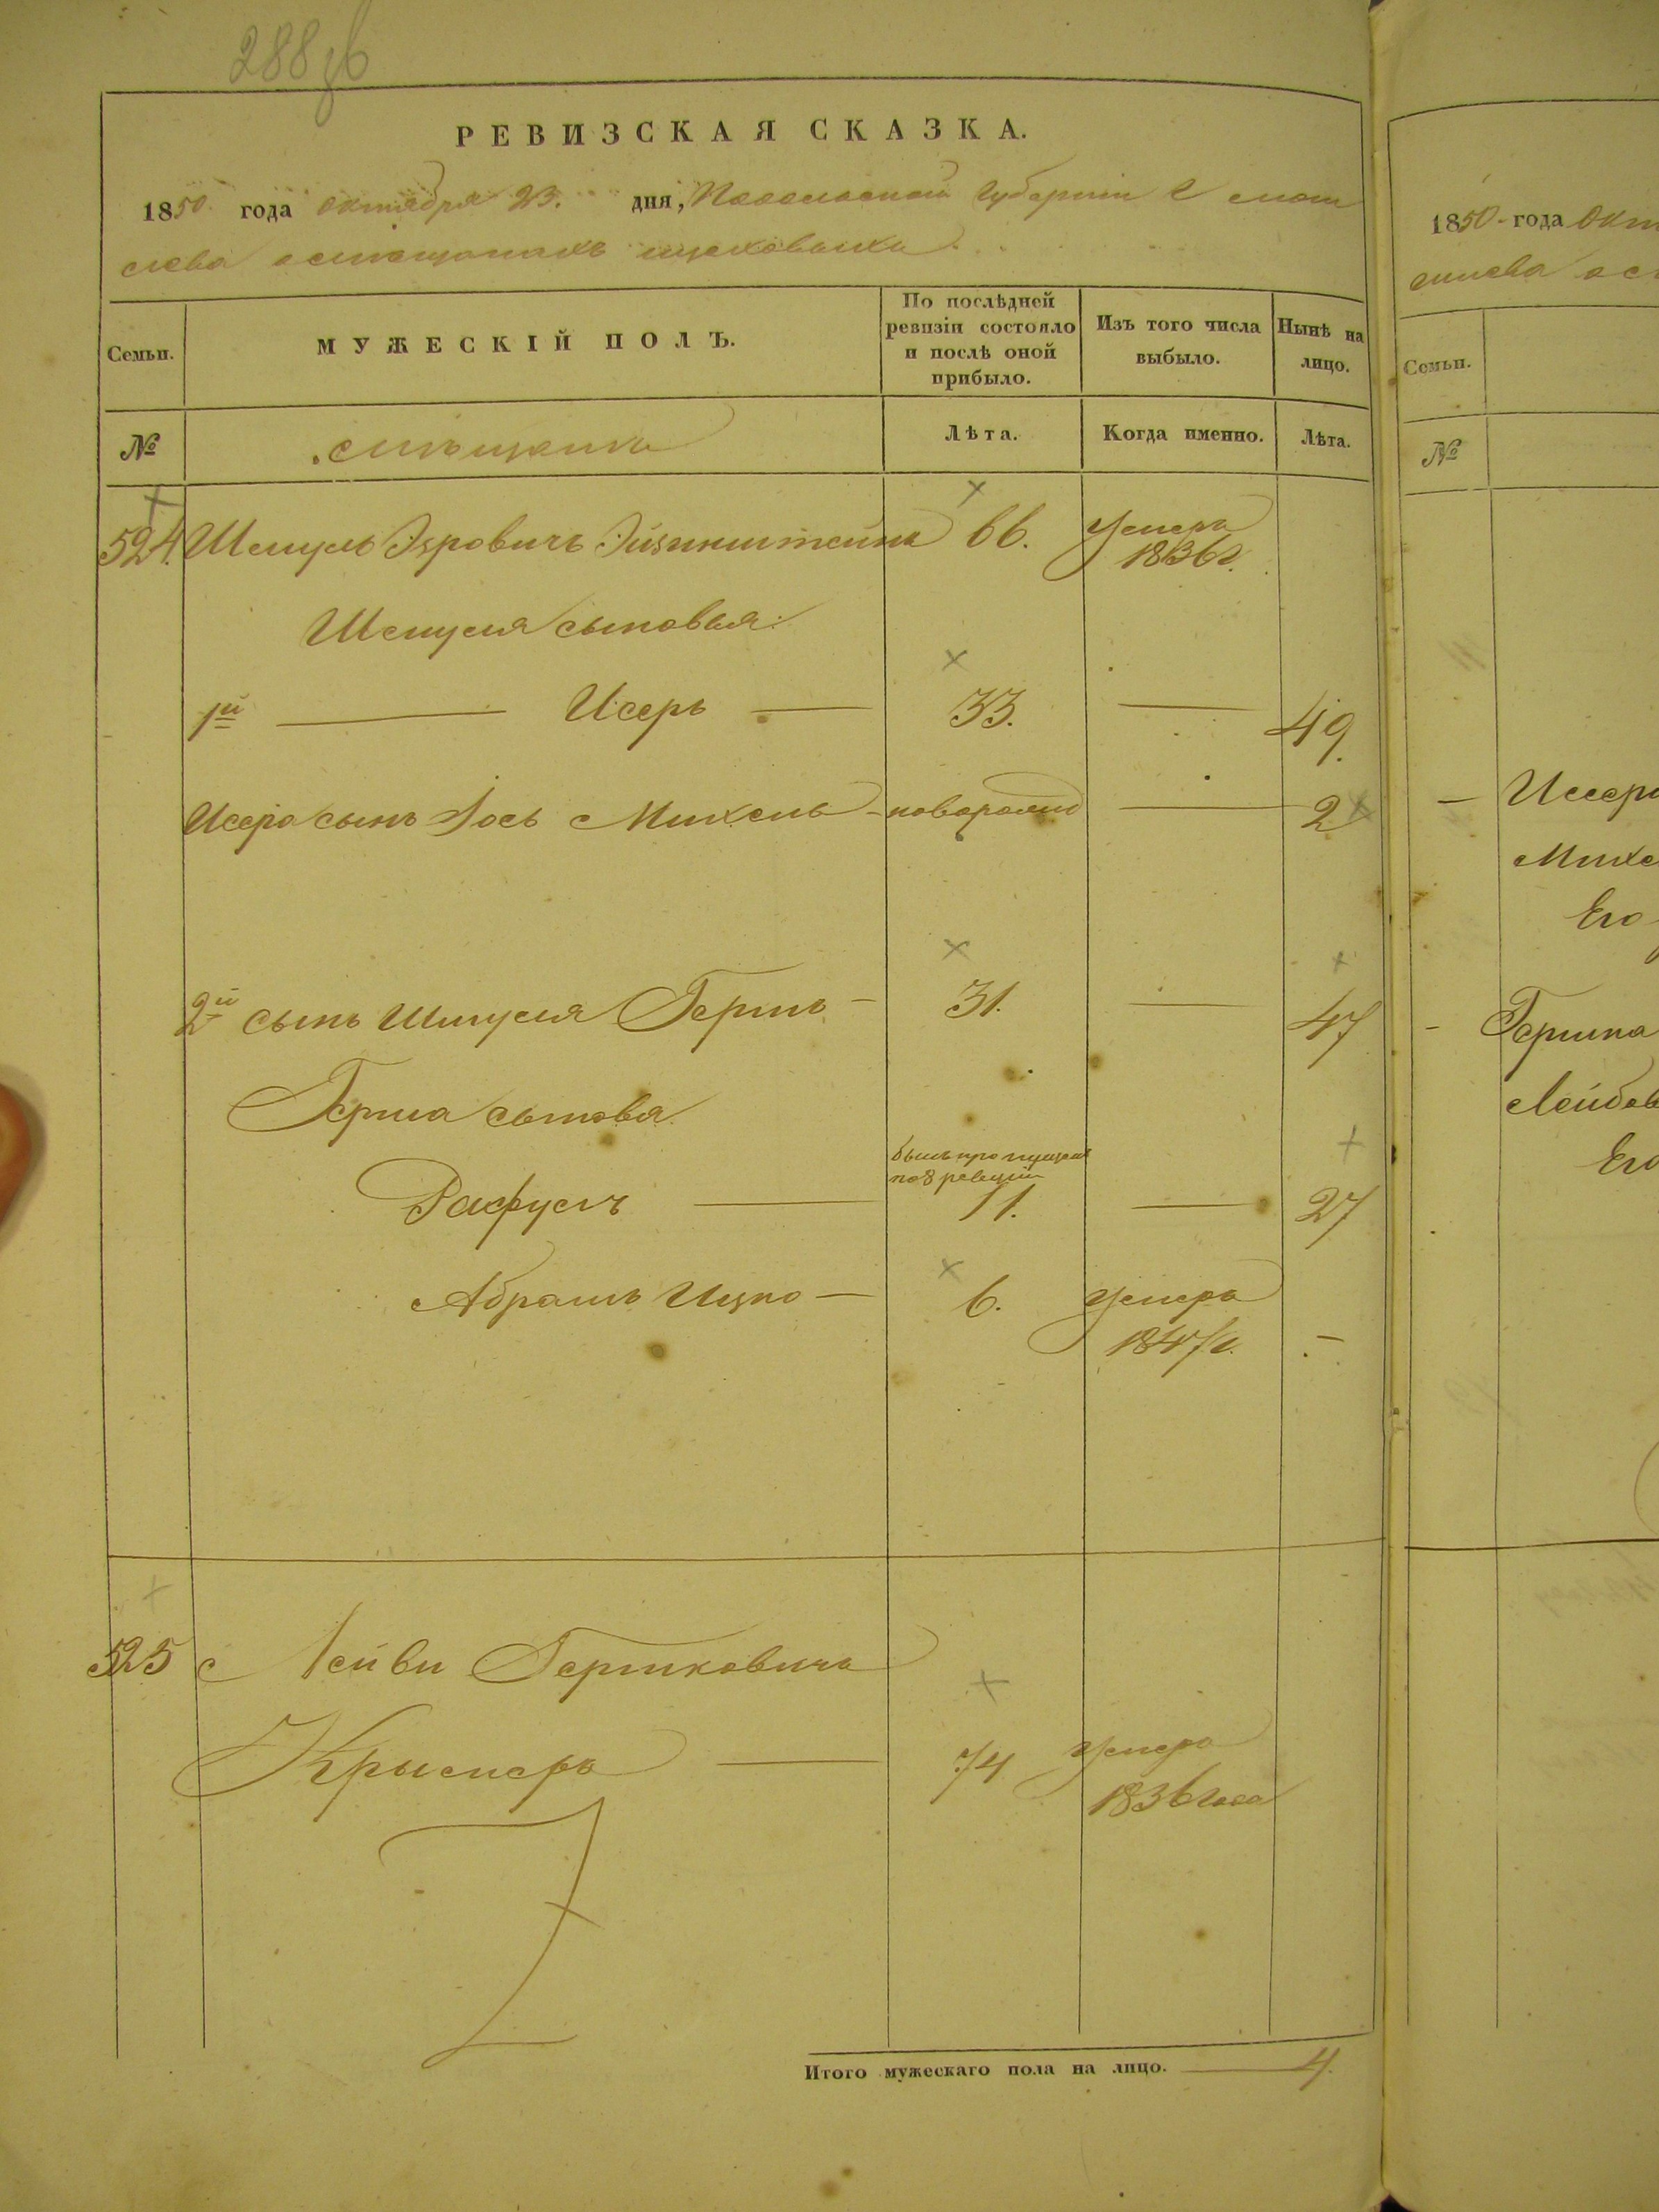 288
РЕВИЗСКАЯ СКАЗКА.
1850 года октября 23. дня, Подольской Губернiи
о мещанахъ
Семьи.
МУЖЕСКІЙ ПОЛЪ.
По послѣдней
ревизіи состояло
и послѣ оной
прибыло.
Изъ того числа
выбыло.
Нынѣ на
лицо.
№
Лѣта.
Когда именно.
Лѣта.
524. Шмуль Эйзинштейнъ 66. Умеръ
1836 г.
Шмуля сыновья:
1й Исеръ 33. 49.
Исера сынъ Іось Михель новорожд 2
2й сынъ Шмуля Гершъ 31. 47
Герша сыновья
былъ пропущенъ
по 8 ревизiи
Рафулъ 11. 27
Абрамъ Ицко 6. Умеръ
1847 г. -
525 Лейви Гершковичъ
74 Умеръ
1836 года
Итого мужескаго пола на лицо. 4.
1850 года Окт
Семьи.
№
Исера
Михе
Его
Гершка
Лейбов
Его